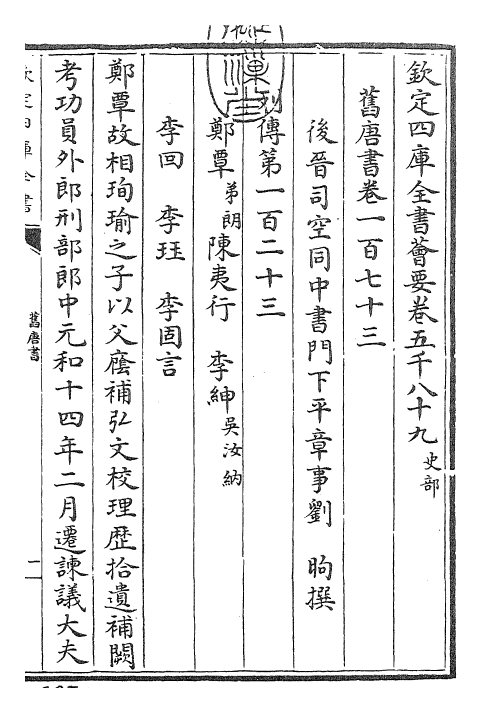 欽定四庫全書薈要卷五千八十九 史部
舊唐書卷一百七十三
後晉司空同中書門下平章事劉 昫撰
列傳第一百二十三
鄭覃 弟朗 陳夷行 李紳 吳汝納
李回 李珏 李固言
鄭覃故相珣瑜之子以父廕補弘文校理歴拾遺補闕
考功員外郎刑部郎中元和十四年二月遷諫議大夫
欽定四庫全書
舊唐書